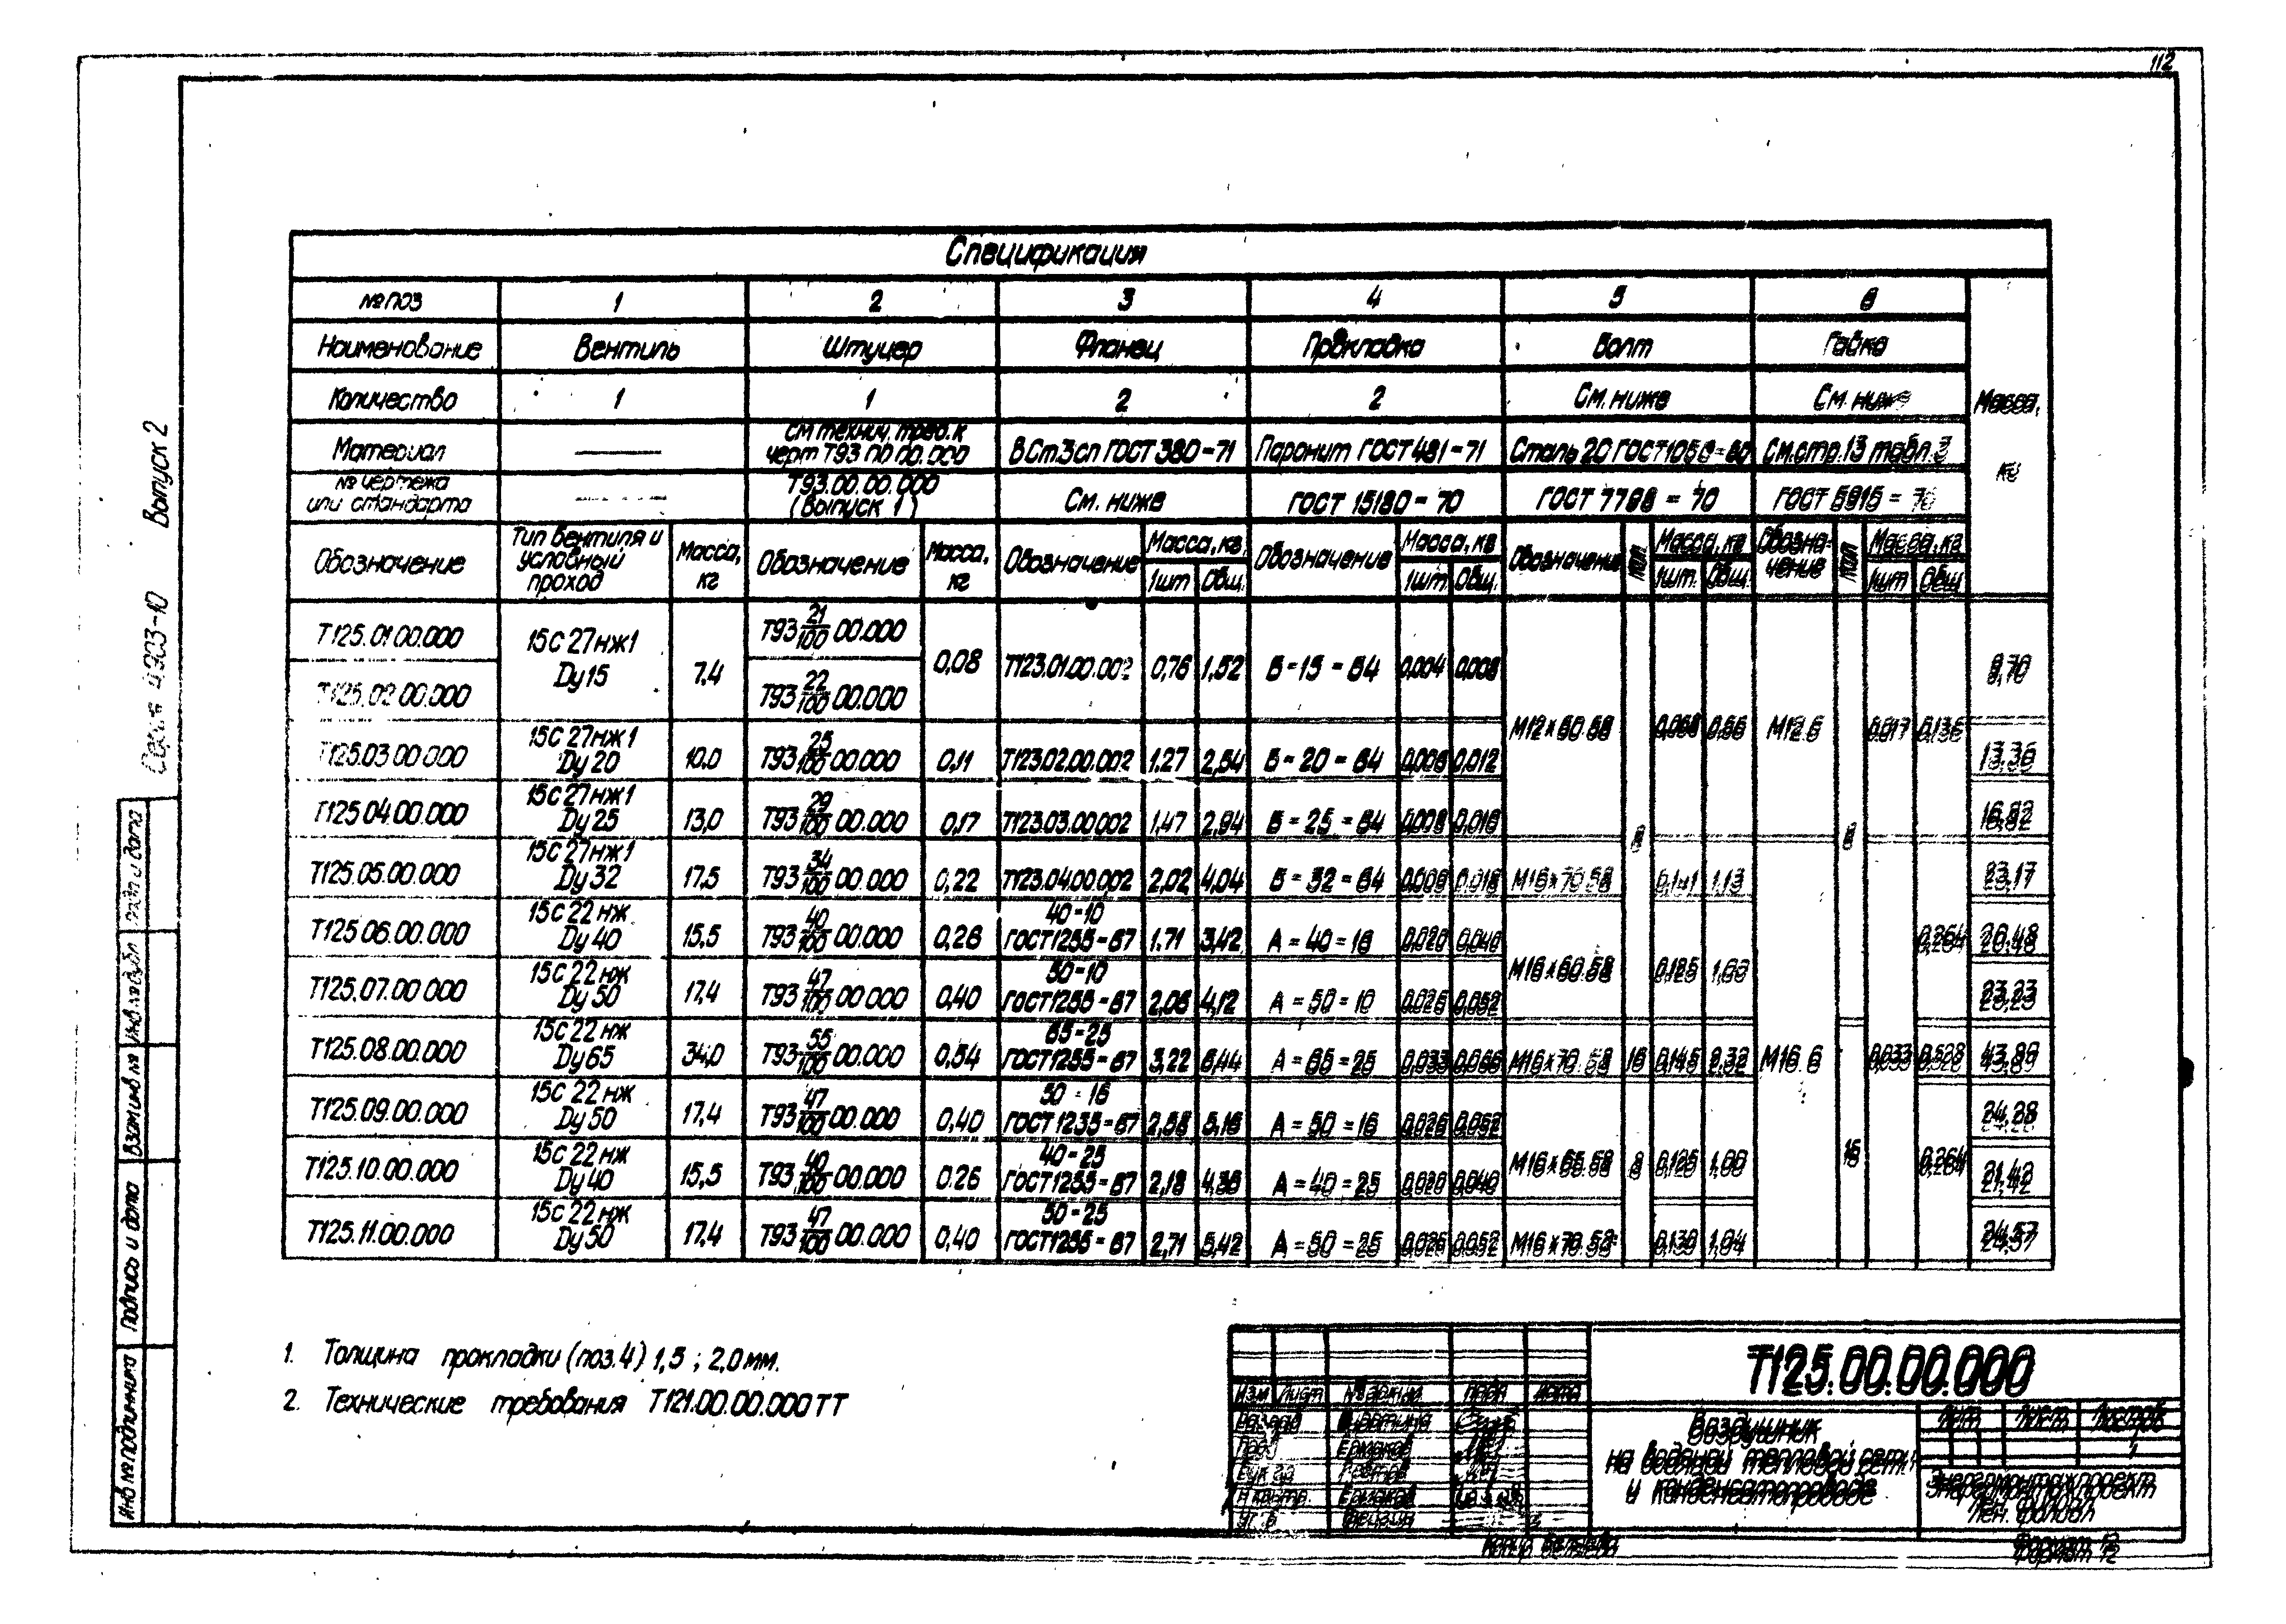 112
Серия 4.903-10 Выпуск 2
Спецификация
№ поз 1 2 3 4 5 6 Масса, кг
Наименование Вентиль Штуцер Фланец Прокладка Болт Гайка
Количество 1 1 2 2 См. ниже См. ниже
Материал — см технич. треб. к черт Т93.00.00.000 ВСт.3сп ГОСТ 380-71 Паронит ГОСТ 481-71 Сталь 20 ГОСТ 1050-60 См. стр. 13 табл. 3
№ чертежа или стандарта — Т93.00.00.000 (Выпуск 1) См. ниже ГОСТ 15180-70 ГОСТ 7798-70 ГОСТ 5915-70
Обозначение Тип вентиля и условный проход Масса, кг Обозначение Масса, кг Обозначение Масса, кг 1шт Общ. Обозначение Масса, кг 1шт Общ. Обозначение Кол. Масса, кг 1шт. Общ. Обозначение Кол. Масса, кг 1шт Общ.
Т125.01.00.000 15с27нж1 Dy15 7,4 Т93 21/100 00.000 0,08 Т123.01.00.002 0,76 1,52 Б-15-64 0,004 0,008 М12х60.58 8 0,068 М12.6 8 0,017 0,136 9,70
Т125.02.00.000 Т93 22/100 00.000
Т125.03.00.000 15с27нж1 Dy20 10,0 Т93 25/100 00.000 0,11 Т123.02.00.002 1,27 2,54 Б-20-64 0,006 0,012 13,36
Т125.04.00.000 15с27нж1 Dy25 13,0 Т93 29/100 00.000 0,17 Т123.03.00.002 1,47 2,94 Б-25-64 0,008 0,016 16,82
Т125.05.00.000 15с27нж1 Dy32 17,5 Т93 34/100 00.000 0,22 Т123.04.00.002 2,02 4,04 Б-32-64 0,009 0,018 М16х70.58 0,141 1,13 23,17
Т125.06.00.000 15с22нж Dy40 15,5 Т93 40/100 00.000 0,26 40-10 ГОСТ1255-67 1,71 3,42 А-40-16 0,020 0,040 М16х60.58 0,125 1,00 0,264 20,48
Т125.07.00.000 15с22нж Dy50 17,4 Т93 47/100 00.000 0,40 50-10 ГОСТ1255-67 2,06 4,12 А-50-10 0,026 0,052 23,23
Т125.08.00.000 15с22нж Dy65 34,0 Т93 55/100 00.000 0,54 65-25 ГОСТ1255-67 3,22 6,44 А-65-25 0,033 0,066 М16х70.58 16 0,145 2,32 М16.6 0,033 0,528 43,89
Т125.09.00.000 15с22нж Dy50 17,4 Т93 47/100 00.000 0,40 50-16 ГОСТ1255-67 2,58 5,16 А-50-16 0,026 0,052 М16х65.58 8 0,125 1,00 16 0,264 24,28
Т125.10.00.000 15с22нж Dy40 15,5 Т93 40/100 00.000 0.26 40-25 ГОСТ1255-67 2,18 4,36 А-40-25 0,020 0,040 21,42
Т125.11.00.000 15с22нж Dy50 17,4 Т93 47/100 00.000 0,40 50-25 ГОСТ1255-67 2,71 5,42 А-50-25 0,026 0,052 М16х70.58 0,130 1,04 24,57
1. Толщина прокладки (поз.4) 1,5; 2,0 мм.
2. Технические требования Т121.00.00.000ТТ
Подп и дата
Инв № дубл
Взам инв №
Подпись и дата
Инв № подлинника
Т125.00.00.000
Изм Лист № докум Подп Дата
Разраб
Пров Ермаков
Н.контр. Ермаков
Воздушник
на водяной тепловой сети
и конденсатопроводе
Лит. Лист Листов
1
Энергомонтажпроект
Лен. филиал
Формат 12